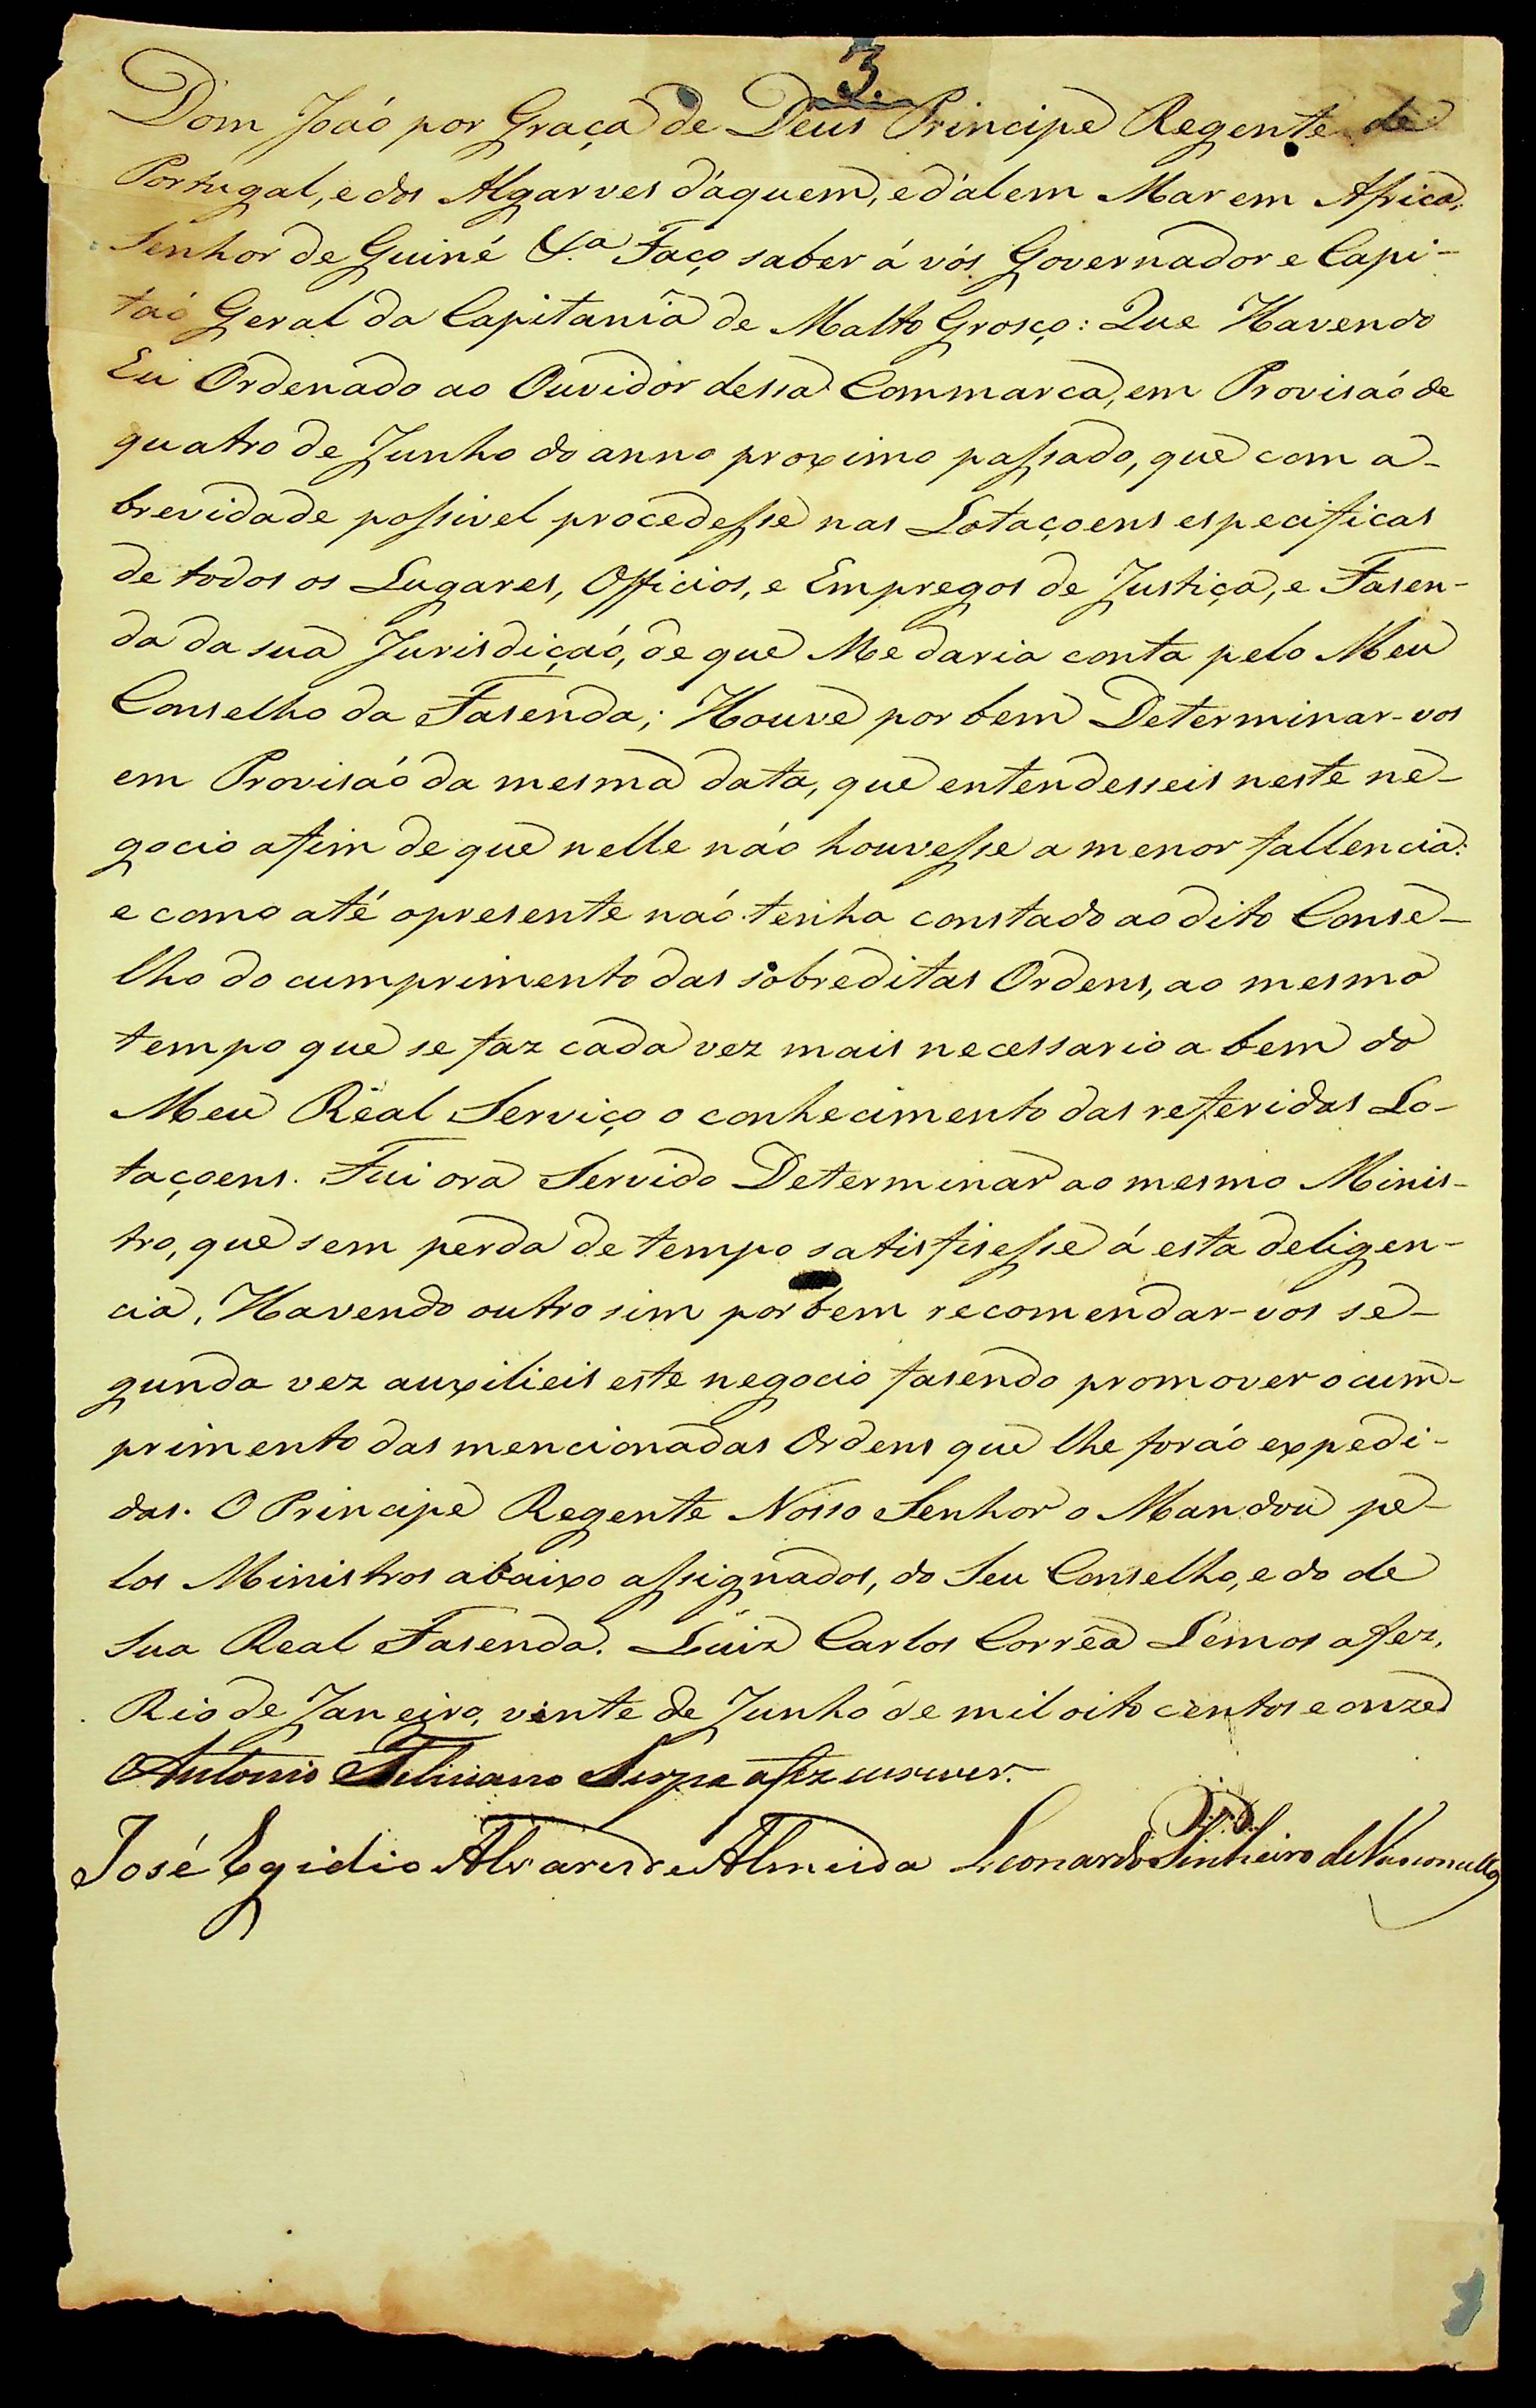 3.
Dom Joáo por Graça de Deus Principe Regente de
Portugal, e dos Algarves d'aquem, e d'alem Mar em Africa,
Senhor de Guiné &.a Faço saber á vós Governador e Capi-
taó Geral da Capitania de Matto Grosço: Que Havendo
Eu Ordenado ao Ouvidor dessa Commarca, em Provisaó de
quatro de Junho do anno proximo passado, que com a-
brevidade possivel procedesse nas Lotaçoens especificas
de todos os Lugares, Officios, e Empregos de Justiça, e Fasen-
da da sua Jurisdiçaó, de que Me daria conta pelo Meu
Conselho da Fasenda; Houve por bem Determinar-vos
em Provisáo da mesma data, que entendesseis neste ne-
gocio afim de que nelle náo houvesse a menor fallencia:
e como até o presente naó tenha constado ao dito Conse-
lho do cumprimento das sobreditas Ordens, ao mesmo
tempo que se faz cada vez mais necessario a bem do
Meu Real Serviço o conhecimento das referidas Lo-
taçoens. Fui ora Servido Determinar ao mesmo Minis-
tro, que sem perda de tempo satisfisesse á esta deligen-
cia, Havendo outro sim por bem recomendar-vos se-
gunda vez auxilieis este negocio fasendo promover o cum-
primento das mencionadas Ordens que lhe foráo expedi-
das. O Principe Regente Nosso Senhor o Mandou pe-
los Ministros abaixo assignados, do Seu Conselho, e do de
Sua Real Fasenda. Luiz Carlos Corrêa Lemos a fez,
Rio de Janeiro, vinte de Junho de mil oito centos e onze
Antonio Feliciano Serpa a fez escrever.
José Egidio Alvares de Almeida Leonardo Pinheiro de Vasconcellos